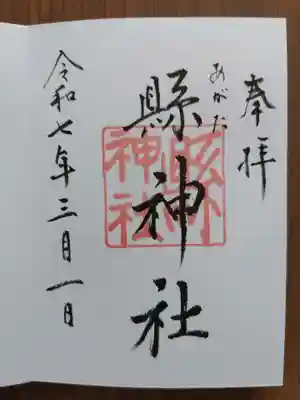 奉拝
あがた
縣神社
縣神社
令和七年三月一日